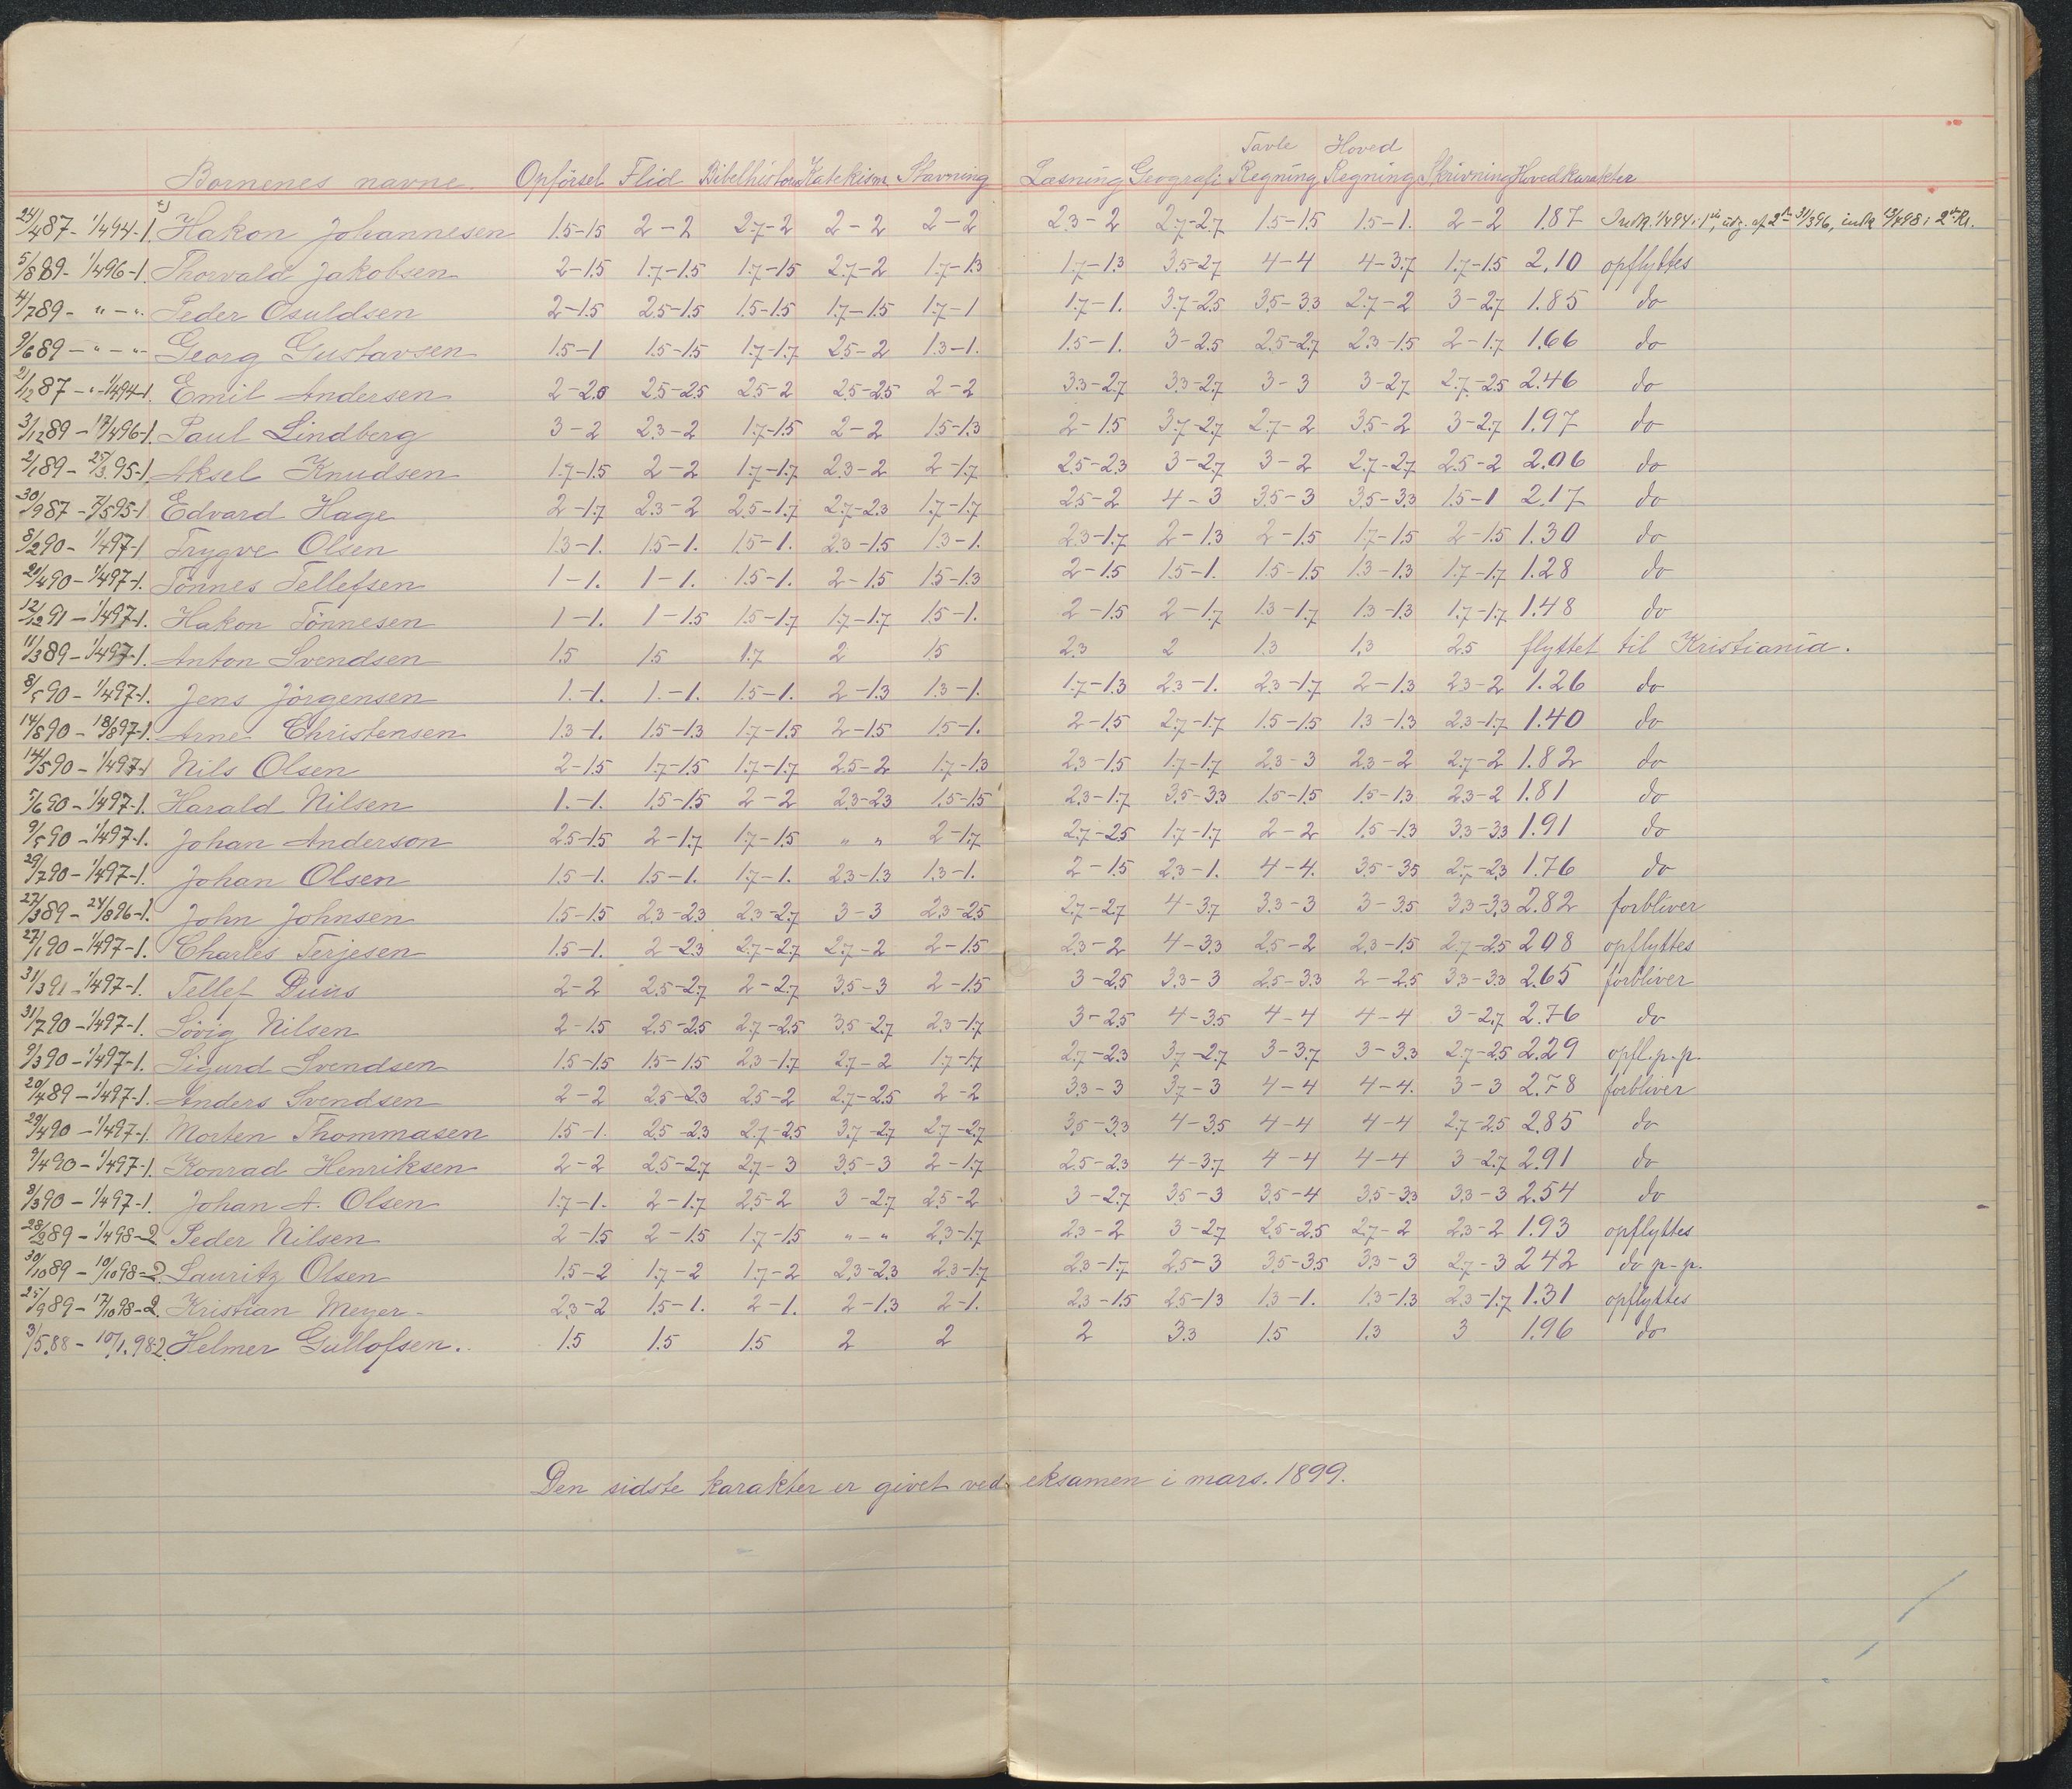 Tavle Hoved
Börnenes navne Opförsel Flid Bibelhistorie Katekism. Stavning Læsning Geografi Regning Regning Skrivning Hovedkarakter
24/4 87 - 1/4 94 - 1 Hakon Johannesen 1.5-1.5 2-2 2.7-2 2-2 2-2 2.3-2 2.7-2.7 1.5-1.5 1.5-1. 2-2 1.87 Indk. 1/4 94 i 1ste, udg. af 2den 31/3 96, indk 13/4 98 i 2den Kl.
5/8 89 - 1/4 96-1. Thorvald Jakobsen 2-1.5 1.7-1.5 1.7-1.5 2.7-2 1.7-1.3 1.7-1.3 3.5-2.7 4-4 4-3.7 1.7-1.5 2.10 opflyttes
4/7 89 - " - ". Peder Osuldsen 2-1.5 2.5-1.5 1.5-1.5 1.7-1.5 1.7-1 1.7-1. 3.7-2.5 3.5-3.3 2.7-2 3-2.7 1.85 do
9/6 89 - " - " Georg Gustavsen 1.5-1 1.5-1.5 1.7-1.7 2.5-2 1.3-1. 1.5-1. 3-2.5 2.5-2.7 2.3-1.5 2-1.7 1.66 do
21/12 87 - " - 1/4 94-1. Emil Andersen 2-2.5 2.5-2.5 2.5-2 2.5-2.5 2-2 3.3-2.7 3.3-2.7 3-3 3-2.7 2.7-2.5 2.46 do
3/12 89 - 17/4 96-1. Paul Lindberg 3-2 2.3-2 1.7-1.5 2-2 1.5-1.3 2-1.5 3.7-2.7 2.7-2 3.5-2 3-2.7 1.97 do
2/1 89 - 25/3.95-1. Aksel Knudsen 1.7-1.5 2-2 1.7-1.7 2.3-2 2-1.7 2.5-2.3 3-2.7 3-2 2.7-2.7 2.5-2 2.06 do
30/9 87 - 7/5 95-1 Edvard Hage 2-1.7 2.3-2 2.5-1.7 2.7-2.3 1.7-1.7 2.5-2 4-3 3.5-3 3.5-3.3 1.5-1 2.17 do
8/2 90 - 1/4 97-1 Trygve Olsen 1.3-1. 1.5-1. 1.5-1. 2.3-1.5 1.3-1. 2.3-1.7 2-1.3 2-1.5 1.7-1.5 2-1.5 1.30 do
20/4 90 - 1/4 97-1. Tönnes Tellefsen 1-1. 1-1. 1.5-1. 2-1.5 1.5-1.3 2-1.5 1.5-1. 1.5-1.5 1.3-1.3 1.7-1.7 1.28 do
12/12 91 - 1/4 97-1. Hakon Tönnesen 1-1. 1-1.5 1.5-1.7 1.7-1.7 1.5-1. 2-1.5 2-1.7 1.3-1.7 1.3-1.3 1.7-1.7 1.48 do
11/3 89 - 1/4 97-1. Anton Svendsen 1.5 1.5 1.7 2 1.5 2.3 2 1.3 1.3 2.5 flyttet til Kristiania.
8/5 90 - 1/4 97-1. Jens Jörgensen 1.-1. 1.-1. 1.5-1. 2-1.3 1.3-1. 1.7-1.3 2.3-1. 2.3-1.7 2-1.3 2.3-2 1.26 do
14/8 90 - 18/8 97-1. Arne Christensen 1.3-1. 1.5-1.3 1.7-1.5 2-1.5 1.5-1. 2-1.5 2.7-1.7 1.5-1.5 1.3-1.3 2.3-1.7 1.40 do
14/5 90 - 1/4 97-1 Nils Olsen 2-1.5 1.7-1.5 1.7-1.7 2.5-2 1.7-1.3 2.3-1.5 1.7-1.7 2.3-3 2.3-2 2.7-2 1.82 do
5/6 90 - 1/4 97-1. Harald Nilsen 1.-1. 1.5-1.5 2-2 2.3-2.3 1.5-1.5 2.3-1.7 3.5-3.3 1.5-1.5 1.5-1.3 2.3-2 1.81 do
9/5 90 - 1/4 97-1. Johan Anderson 2.5-1.5 2-1.7 1.7-1.5 " " 2-1.7 2.7-2.5 1.7-1.7 2-2 1.5-1.3 3.3-3.3 1.91 do
29/7 90 - 1/4 97-1. Johan Olsen 1.5-1. 1.5-1. 1.7-1. 2.3-1.3 1.3-1. 2-1.5 2.3-1. 4-4. 3.5-3.5 2.7-2.3 1.76 do
27/3 89 - 24/8 96-1. John Johnsen 1.5-1.5 2.3-2.3 2.3-2.7 3-3 2.3-2.5 2.7-2.7 4-3.7 3.3-3 3-3.5 3.3-3.3 2.82 forbliver
27/1 90 - 1/4 97-1. Charles Terjesen 1.5-1. 2-2.3 2.7-2.7 2.7-2 2-1.5 2.3-2 4-3.3 2.5-2 2.3-1.5 2.7-2.5 2.08 opflyttes
31/3 91 - 1/4 97-1. Tellef Duus 2-2 2.5-2.7 2-2.7 3.5-3 2-1.5 3-2.5 3.3-3 2.5-3.3 2-2.5 3.3-3.3 2.65 forbliver
31/7 90 - 1/4 97-1. Lövig Nilsen 2-1.5 2.5-2.5 2.7-2.5 3.5-2.7 2.3-1.7 3-2.5 4-3.5 4-4 4-4 3-2.7 2.76 do
9/3 90 - 1/4 97-1. Sigurd Svendsen 1.5-1.5 1.5-1.5 2.3-1.7 2.7-2 1.7-1.7 2.7-2.3 3.7-2.7 3-3.7 3-3.3 2.7-2.5 2.29 opfl. p.p.
20/4 89 - 1/4 97-1. Anders Svendsen 2-2 2.5-2.3 2.5-2 2.7-2.5 2-2 3.3-3 3.7-3 4-4 4-4. 3-3 2.78 forbliver
29/4 90 - 1/4 97-1. Morten Thommasen 1.5-1. 2.5-2.3 2.7-2.5 3.7-2.7 2.7-2.7 3.5-3.3 4-3.5 4-4 4-4 2.7-2.5 2.85 do
9/4 90 - 1/4 97-1. Konrad Henriksen 2-2 2.5-2.7 2.7-3 3.5-3 2-1.7 2.5-2.3 4-3.7 4-4 4-4 3-2.7 2.91 do
8/3 90 - 1/4 97-1. Johan A. Olsen 1.7-1. 2-1.7 2.5-2 3-2.7 2.5-2 3-2.7 3.5-3 3.5-4 3.5-3.3 3.3-3 2.54 do
28/2 89 - 1/4 98-2 Peder Nilsen 2-1.5 2-1.5 1.7-1.5 " - " 2.3-1.7 2.3-2 3-2.7 2.5-2.5 2.7-2 2.3-2 1.93 opflyttes
30/10 89 - 10/10 98-2. Lauritz Olsen 1.5-2 1.7-2 1.7-2 2.3-2.3 2.3-1.7 2.3-1.7 2.5-3 3.5-3.5 3.3-3 2.7-3 2.42 do p-p.
25/9 89 - 17/10 98-2. Kristian Meyer 2.3-2 1.5-1. 2-1. 2-1.3 2-1. 2.3-1.5 2.5-1.3 1.3-1. 1.3-1.3 2.3-1.7 1.31 opflyttes
3/5.88 - 10/1.98 2. Helmer Gullofsen. 1.5 1.5 1.5 2 2 2 3.3 1.5 1.3 3 1.96 do
Den sidste karakter er givet ved eksamen i mars. 1899.